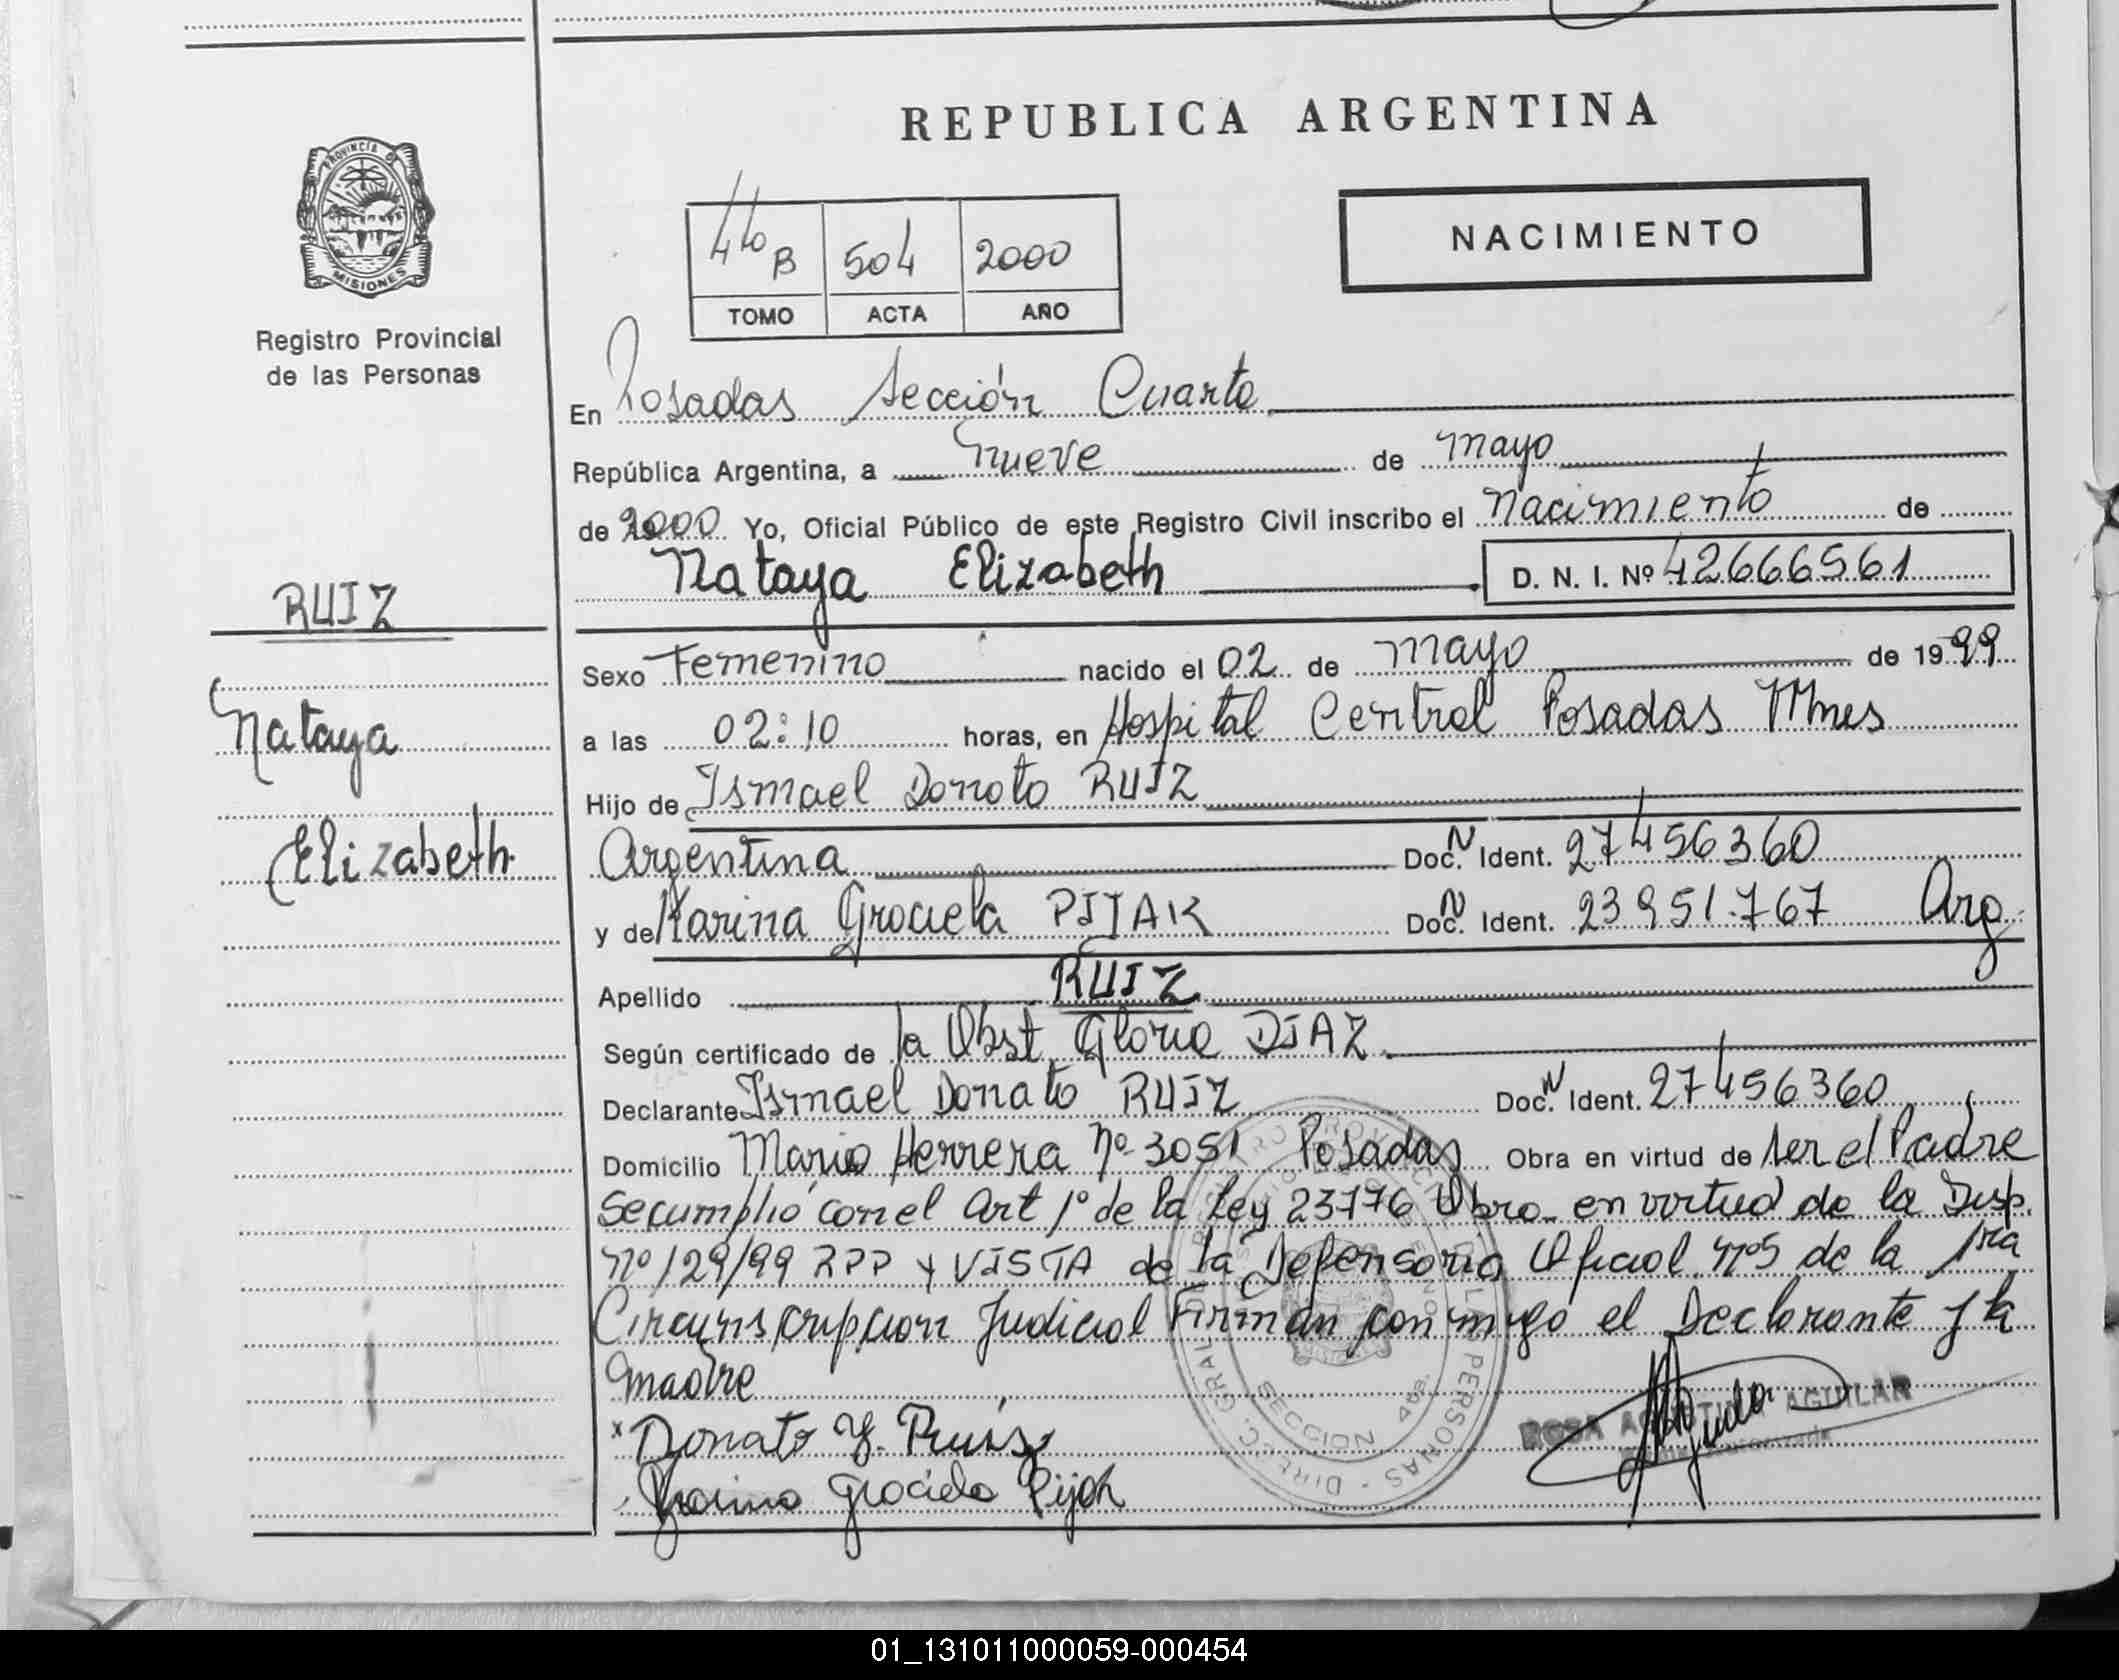 REPUBLICA ARGENTINA
PROVINCIA DE
MISIONES
Registro Provincial
de las Personas
NACIMIENTO
B 504 2000
TOMO ACTA AÑO
En Posadas Sección Cuarta
República Argentina, a nueve de mayo
de 2000 Yo, Oficial Público de este Registro Civil inscribo el Nacimiento de
Nataya Elizabeth D. N. I. Nº 42666561
RUIZ
Nataya
Elizabeth
Sexo Femenino nacido el 02 de mayo de 1999
a las 02:10 horas, en Hospital Central Posadas Mnes
Hijo de Ismael Donato RUIZ
Argentina Doc. N Ident. 27456360
y de Karina Graciela PIJAK Doc. N Ident. 23951.767 Arg
Apellido RUIZ
Según certificado de la Obst. Gloria DIAZ
Declarante Ismael Donato RUIZ Doc. N Ident. 27456360
Domicilio Mario Herrera nº 3051 Posadas Obra en virtud de ser el Padre
Se cumplió con el Art 1º de la Ley 23776 Obro en virtud de la Disp.
Nº 129/99 RPP y VISTA de la Defensoria Oficial Nº5 de la 1ra
Circunscripcion Judicial Firman conmigo el Declarante y la
madre
x Donato Y. Ruiz
Karina Graciela Pijak
ROSA AGUSTINA AGUILAR
01_131011000059-000454